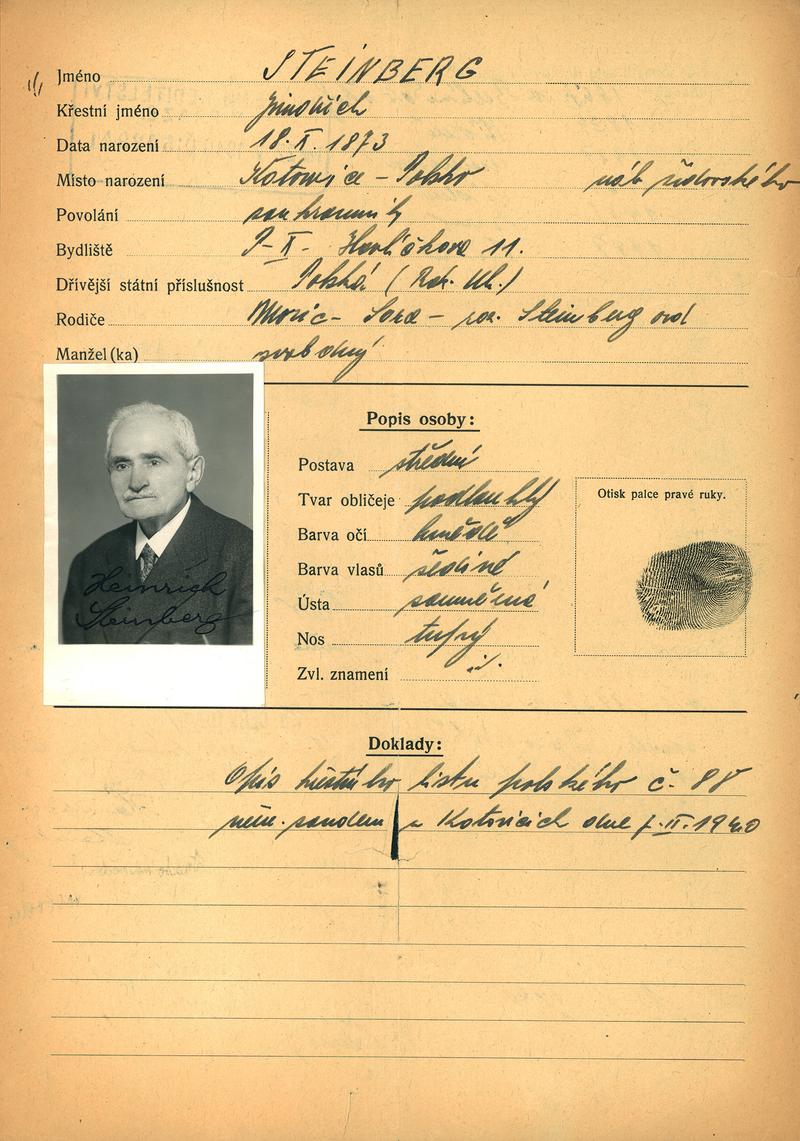 Jméno STEINBERG
Křestní jméno Jindřich
Data narození 18. X. 1873
Místo narození Katowice - Polsko náb židovského
Povolání soukromník
Bydliště P-X- Havlíčkova 11.
Dřívější státní příslušnost Polská (Rak. Uh.)
Rodiče Moric - Sara - roz. Steinberg ová
Manžel (ka) svobodný
Popis osoby:
Postava střední
Tvar obličeje podlouhlý
Barva očí hnědé
Barva vlasů šedivé
Ústa souměrná
Nos tupý
Zvl. znamení
Otisk palce pravé ruky.
Heinrich
Steinberg
Doklady:
Opis křestního listu polského č. 88
něm. soudem v Katovicích dne II. 1940